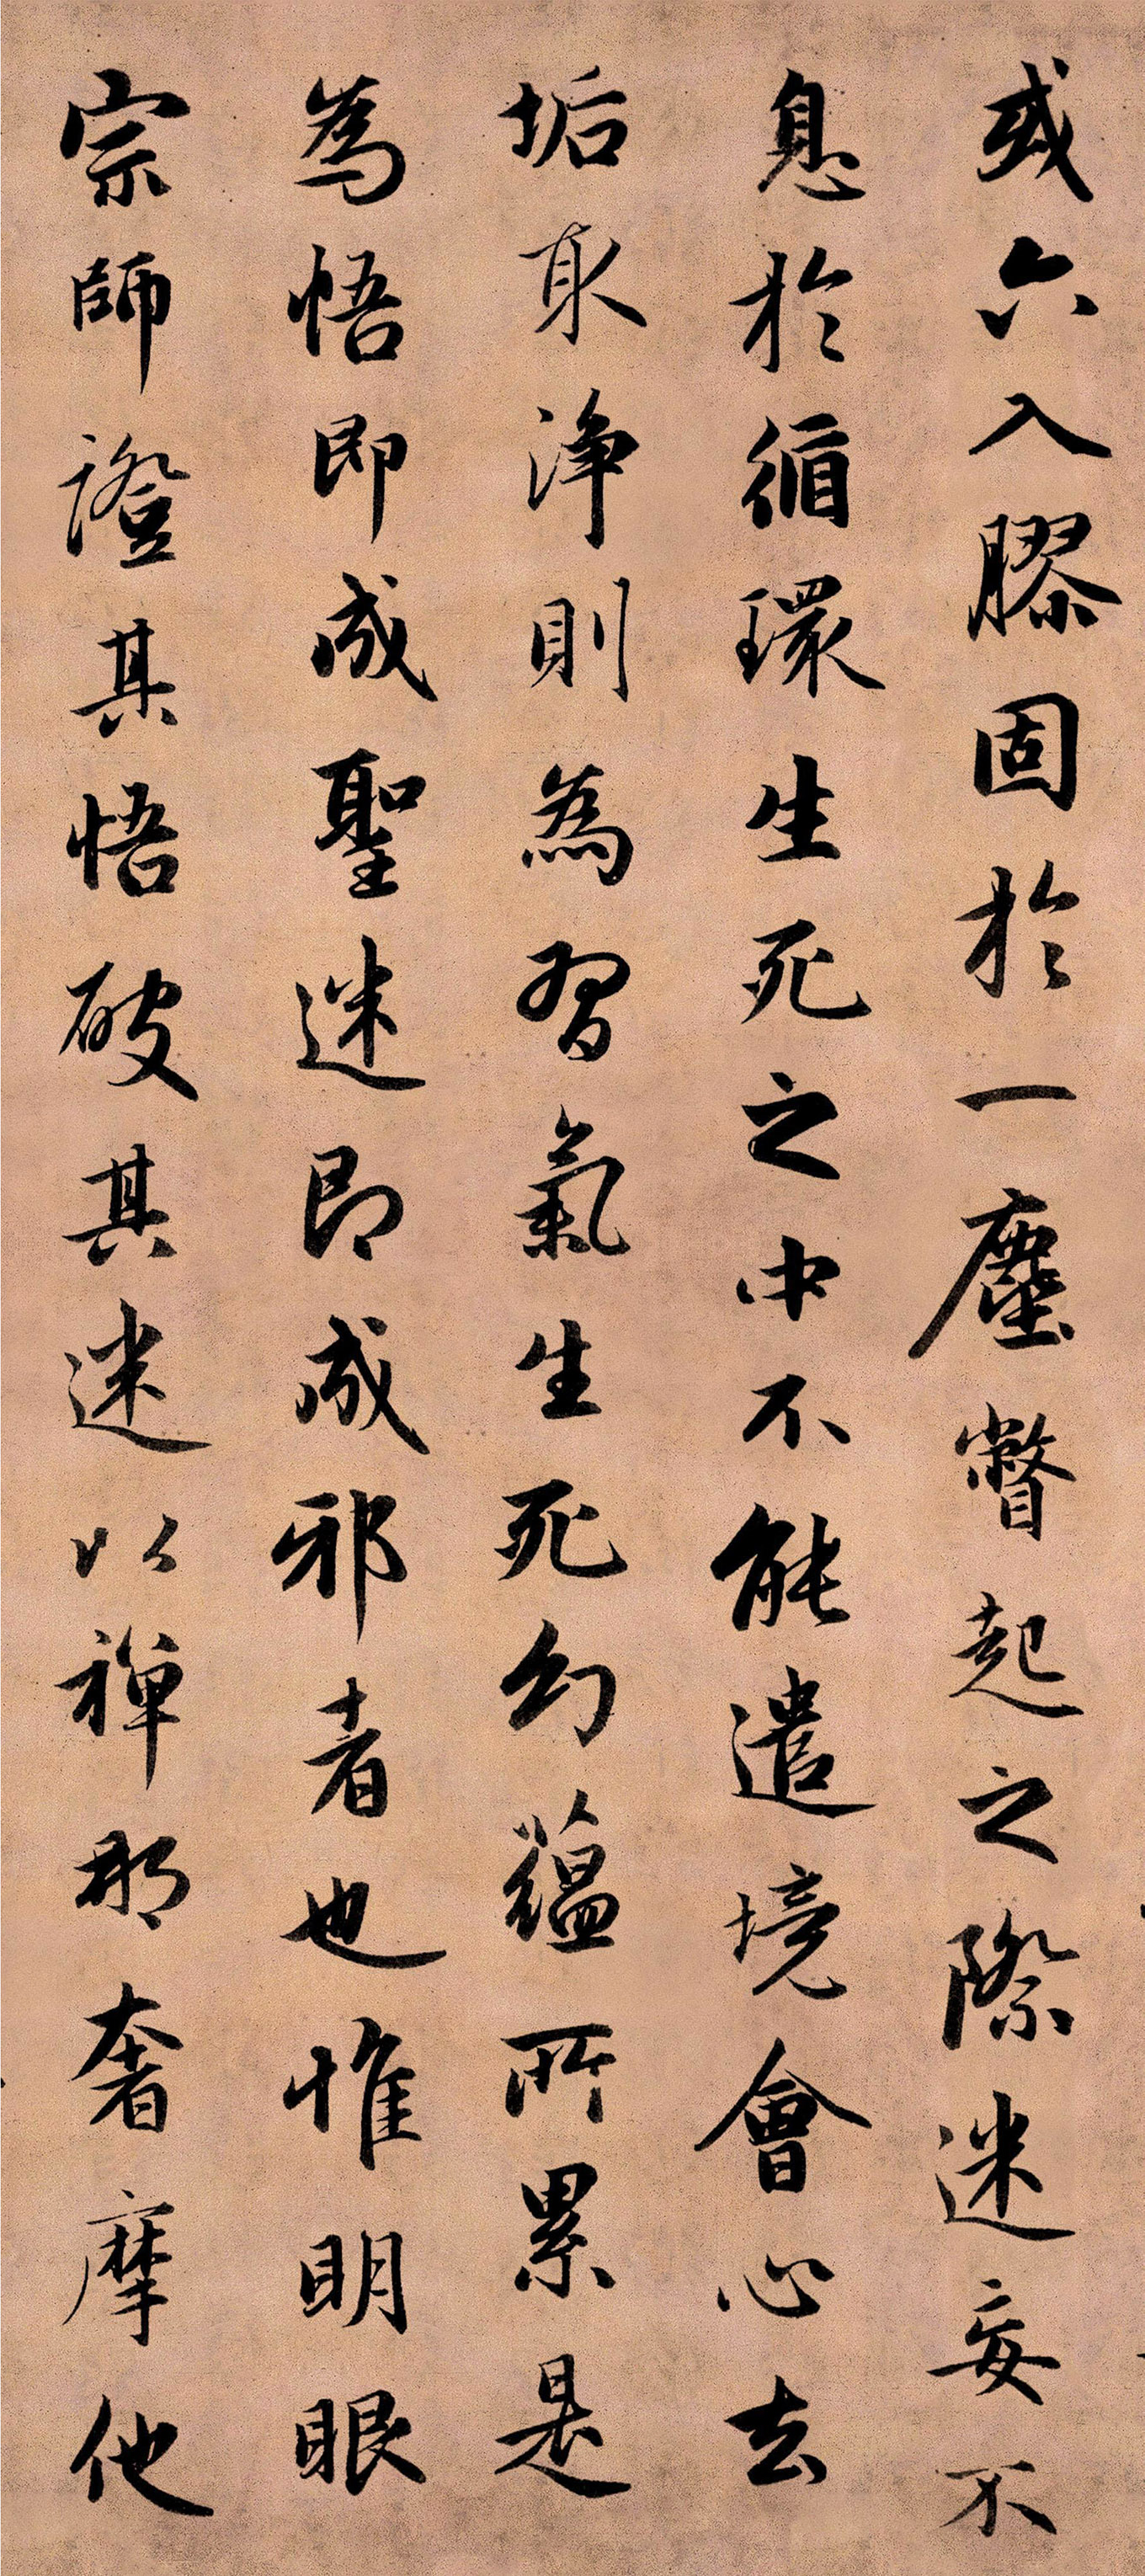 或六入膠固於一塵瞥起之際迷妄不
息於循環生死之中不能遣境會心去
垢取淨則為習氣生死幻蘊所累是
為悟即成聖迷即成邪者也惟明眼
宗師證其悟破其迷以禪那奢摩他